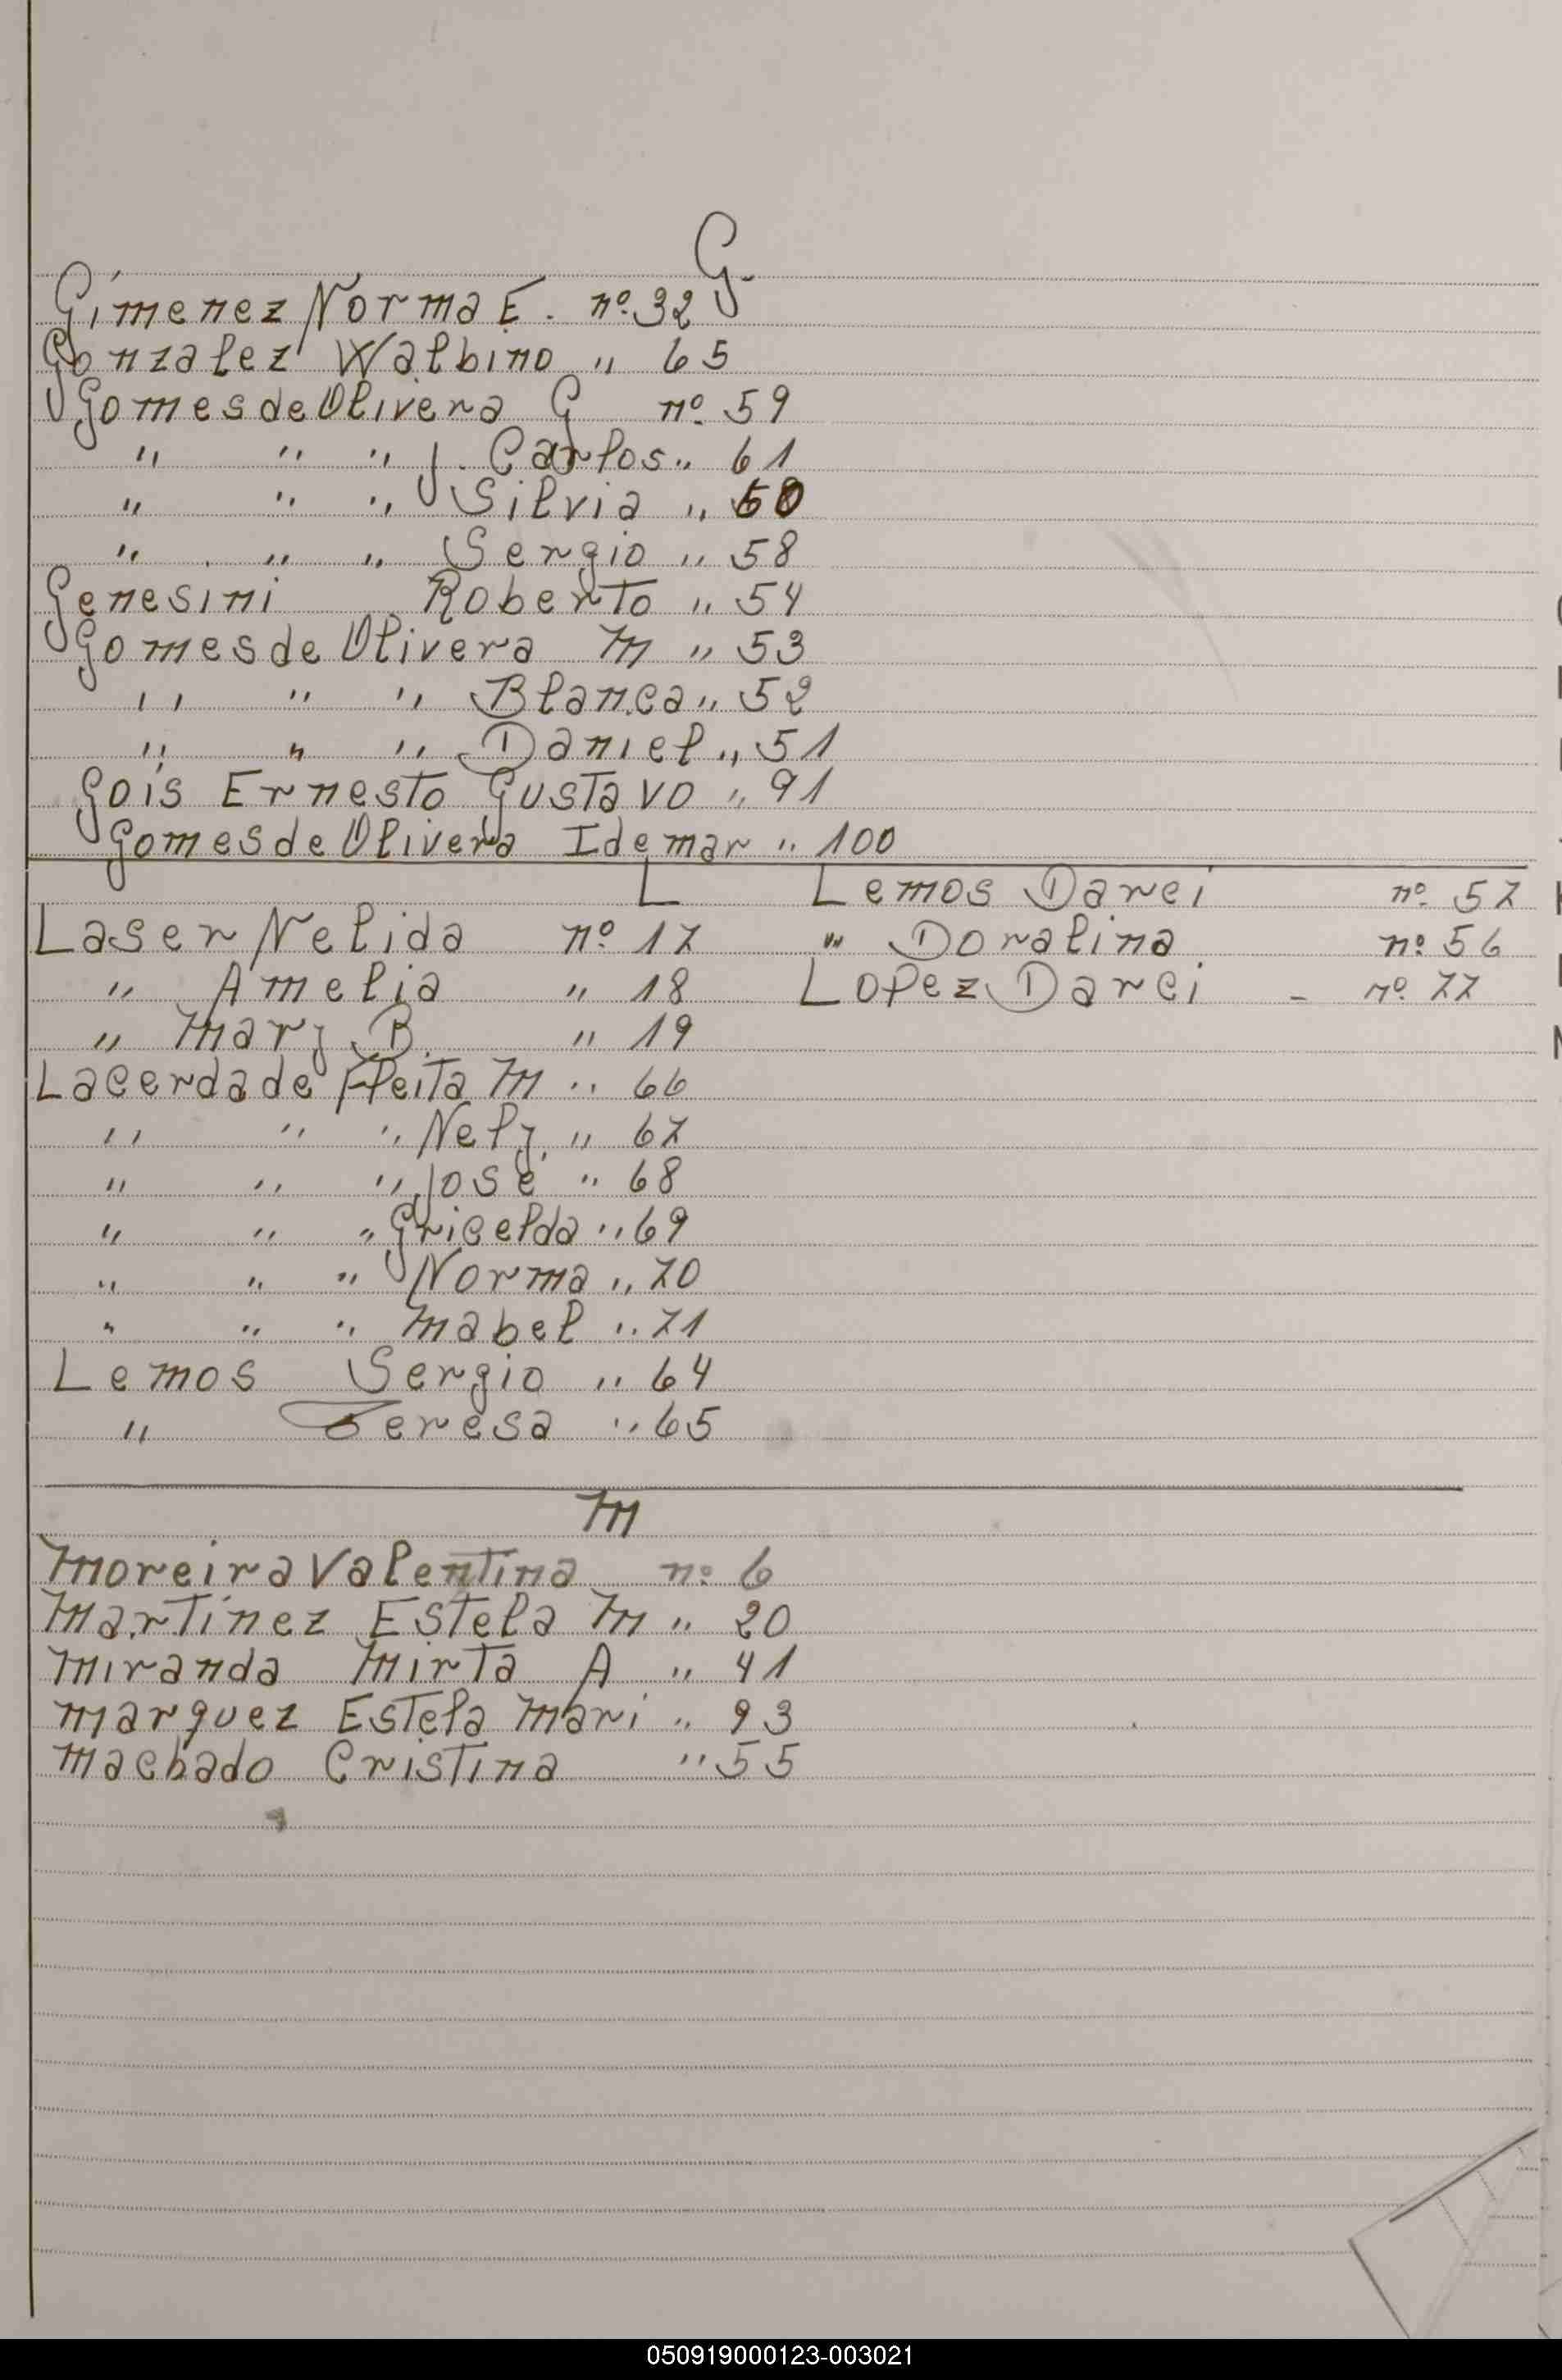 G.
Gimenez Norma E. nº 32
Gonzalez Walbino " 65
Gomes de Olivera G nº 59
" " " J. Carlos " 61
" " " Silvia " 60
" " " Sergio " 58
Genesini Roberto " 54
Gomes de Olivera M " 53
" " " Blanca " 52
" " " Daniel " 51
Gois Ernesto Gustavo " 91
Gomes de Olivera Idemar " 100
L
Laser Nelida nº 17
" Amelia " 18
" Mary B. " 19
Lacerda de Fleita M " 66
" " " Nely " 67
" " " José " 68
" " " Gricelda " 69
" " " Norma " 70
" " " Mabel " 71
Lemos Sergio " 64
" Teresa " 65
Lemos Darci nº 57
" Doralina nº 56
Lopez Darci - nº 77
M
Moreira Valentina nº 6
Martínez Estela M " 20
Miranda Mirta A " 41
Marquez Estela Mari " 93
Machado Cristina " 55
050919000123-003021